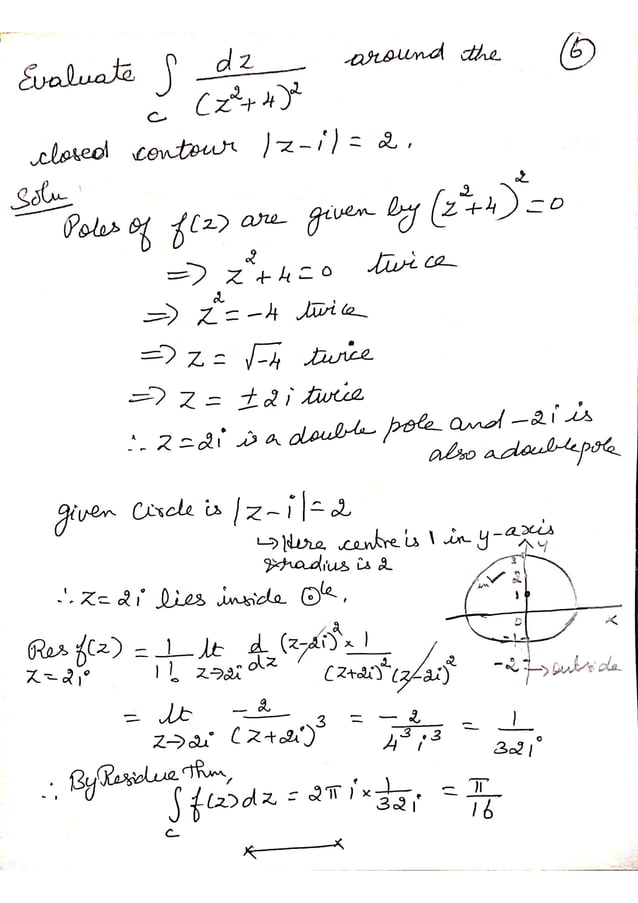 Evaluate ∫_C dz/(z²+4)² around the ⑥
closed contour |z-i| = 2.
Solu:
Poles of f(z) are given by (z²+4)² = 0
=> z²+4=0 twice
=> z² = -4 twice
=> z = √-4 twice
=> z = ±2i twice
∴ z=2i is a double pole and -2i is
also a double pole
given Circle is |z-i|=2
↳ Here centre is 1 in y-axis
& radius is 2
∴ z=2i lies inside ⊙le.
Res f(z) = 1/1! lt d/dz (z-2i)² × 1/((z+2i)²(z-2i)²)
z=2i z→2i
= lt -2/(z+2i)³ = -2/(4³i³) = 1/(32i)
z→2i
∴ By Residue Thm,
∫_C f(z)dz = 2πi × 1/(32i) = π/16
y
3
2
in ✓
1
0
x
-1
-2 → outside